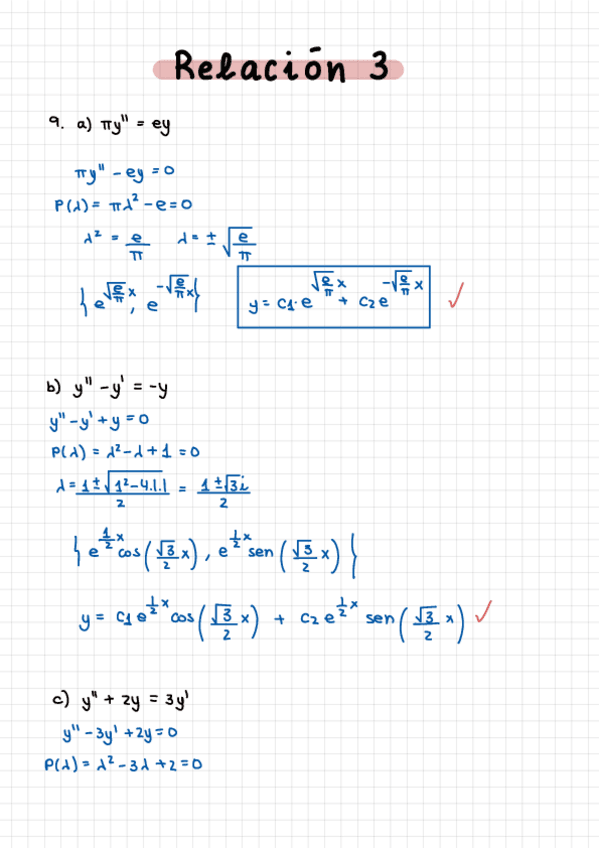 Relación 3
9. a) πy'' = ey
πy'' - ey = 0
P(λ) = πλ² - e = 0
λ² = e/π λ = ± √(e/π)
{ e^(√(e/π) x), e^(-√(e/π) x) } y = C1·e^(√(e/π) x) + C2 e^(-√(e/π) x) ✓
b) y'' - y' = -y
y'' - y' + y = 0
P(λ) = λ² - λ + 1 = 0
λ = (1 ± √(1² - 4.1.1))/2 = (1 ± √3 i)/2
{ e^(1/2 x) cos(√3/2 x), e^(1/2 x) sen(√3/2 x) }
y = C1 e^(1/2 x) cos(√3/2 x) + C2 e^(1/2 x) sen(√3/2 x) ✓
c) y'' + 2y = 3y'
y'' - 3y' + 2y = 0
P(λ) = λ² - 3λ + 2 = 0